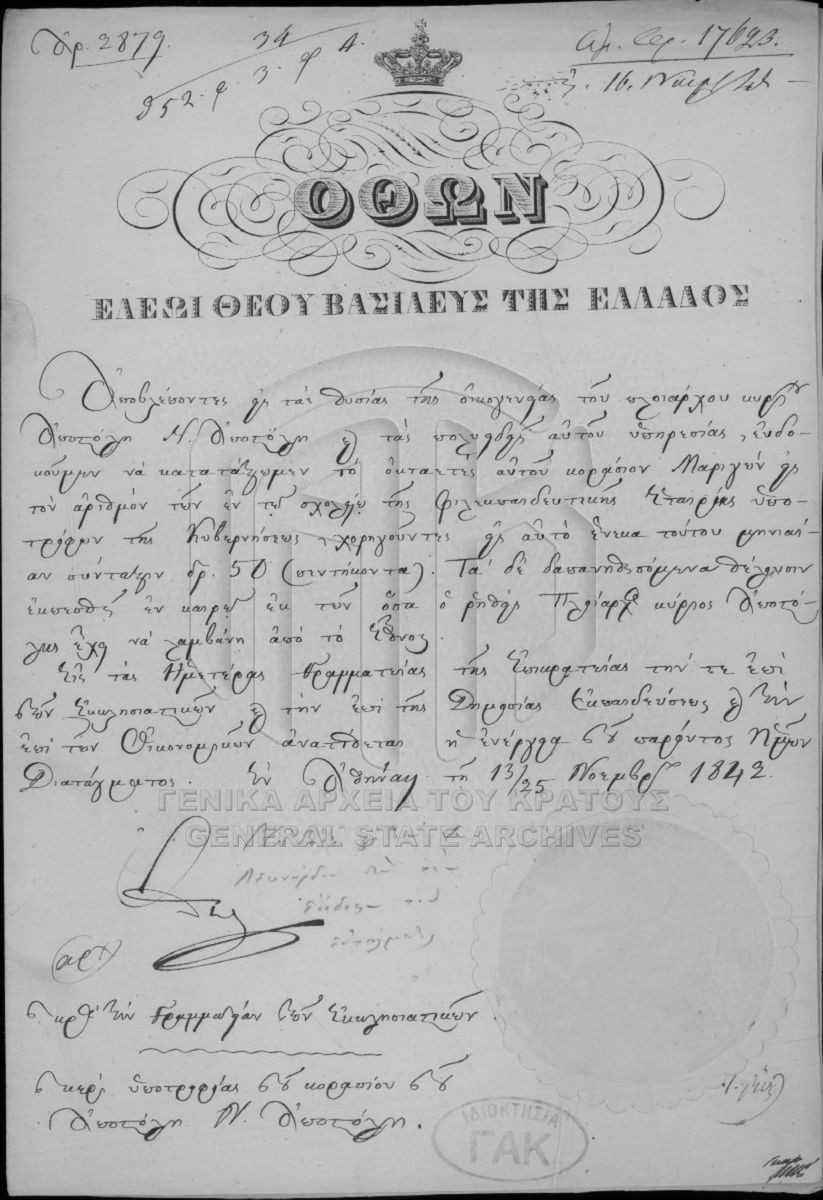 Ἀρ. 2879.
34
952. φ 3. φ 4.
Ἀρ. Πρ. 17623.
16.
ΟΘΩΝ
ΕΛΕΩΙ ΘΕΟΥ ΒΑΣΙΛΕΥΣ ΤΗΣ ΕΛΛΑΔΟΣ
Ἀποβλέποντες εἰς τὰς θυσίας τῆς οἰκογενείας τοῦ πλοιάρχου κυρίου
Ἀποστόλη Ν. Ἀποστόλη καὶ τὰς πολυειδεῖς αὐτοῦ ὑπηρεσίας, εὐδο-
κοῦμεν νὰ κατατάξωμεν τὸ ὀκταετὲς αὐτοῦ κοράσιον Μαριγὼν εἰς
τὸν ἀριθμὸν τῶν ἐν τῷ σχολείῳ τῆς φιλεκπαιδευτικῆς Ἑταιρίας ὑπο-
τρόφων τῆς Κυβερνήσεως, χορηγοῦντες εἰς αὐτὸ ἕνεκα τούτου μηνιαί-
αν σύνταξιν δρ. 50 (πεντήκοντα). Τὰ δὲ δαπανηθησόμενα θέλουσιν
ἐκπεσθῆ ἐν καιρῷ ἐκ τῶν ὅσα ὁ ῥηθεὶς Πλοίαρχος κύριος Ἀποστό-
λης ἔχει νὰ λαμβάνῃ ἀπὸ τὸ Ἔθνος.
Εἰς τὰς Ἡμετέρας Γραμματείας τῆς Ἐπικρατείας τήν τε ἐπὶ
τῶν Ἐκκλησιαστικῶν καὶ τὴν ἐπὶ τῆς Δημοσίας Ἐκπαιδεύσεως καὶ τὴν
ἐπὶ τῶν Οἰκονομικῶν ἀνατίθεται ἡ ἐνέργεια τοῦ παρόντος Ἡμῶν
Διατάγματος. Ἐν Ἀθήναις τῇ 13/25 Νοεμβρίου 1842.
ΓΕΝΙΚΑ ΑΡΧΕΙΑ ΤΟΥ ΚΡΑΤΟΥΣ
GENERAL STATE ARCHIVES
αρχ
πρὸς τὴν Γραμματείαν τῶν Ἐκκλησιαστικῶν.
περὶ ὑποτροφίας τοῦ κορασίου τοῦ
Ἀποστόλη Ν. Ἀποστόλη.
ΙΔΙΟΚΤΗΣΙΑ
ΓΑΚ